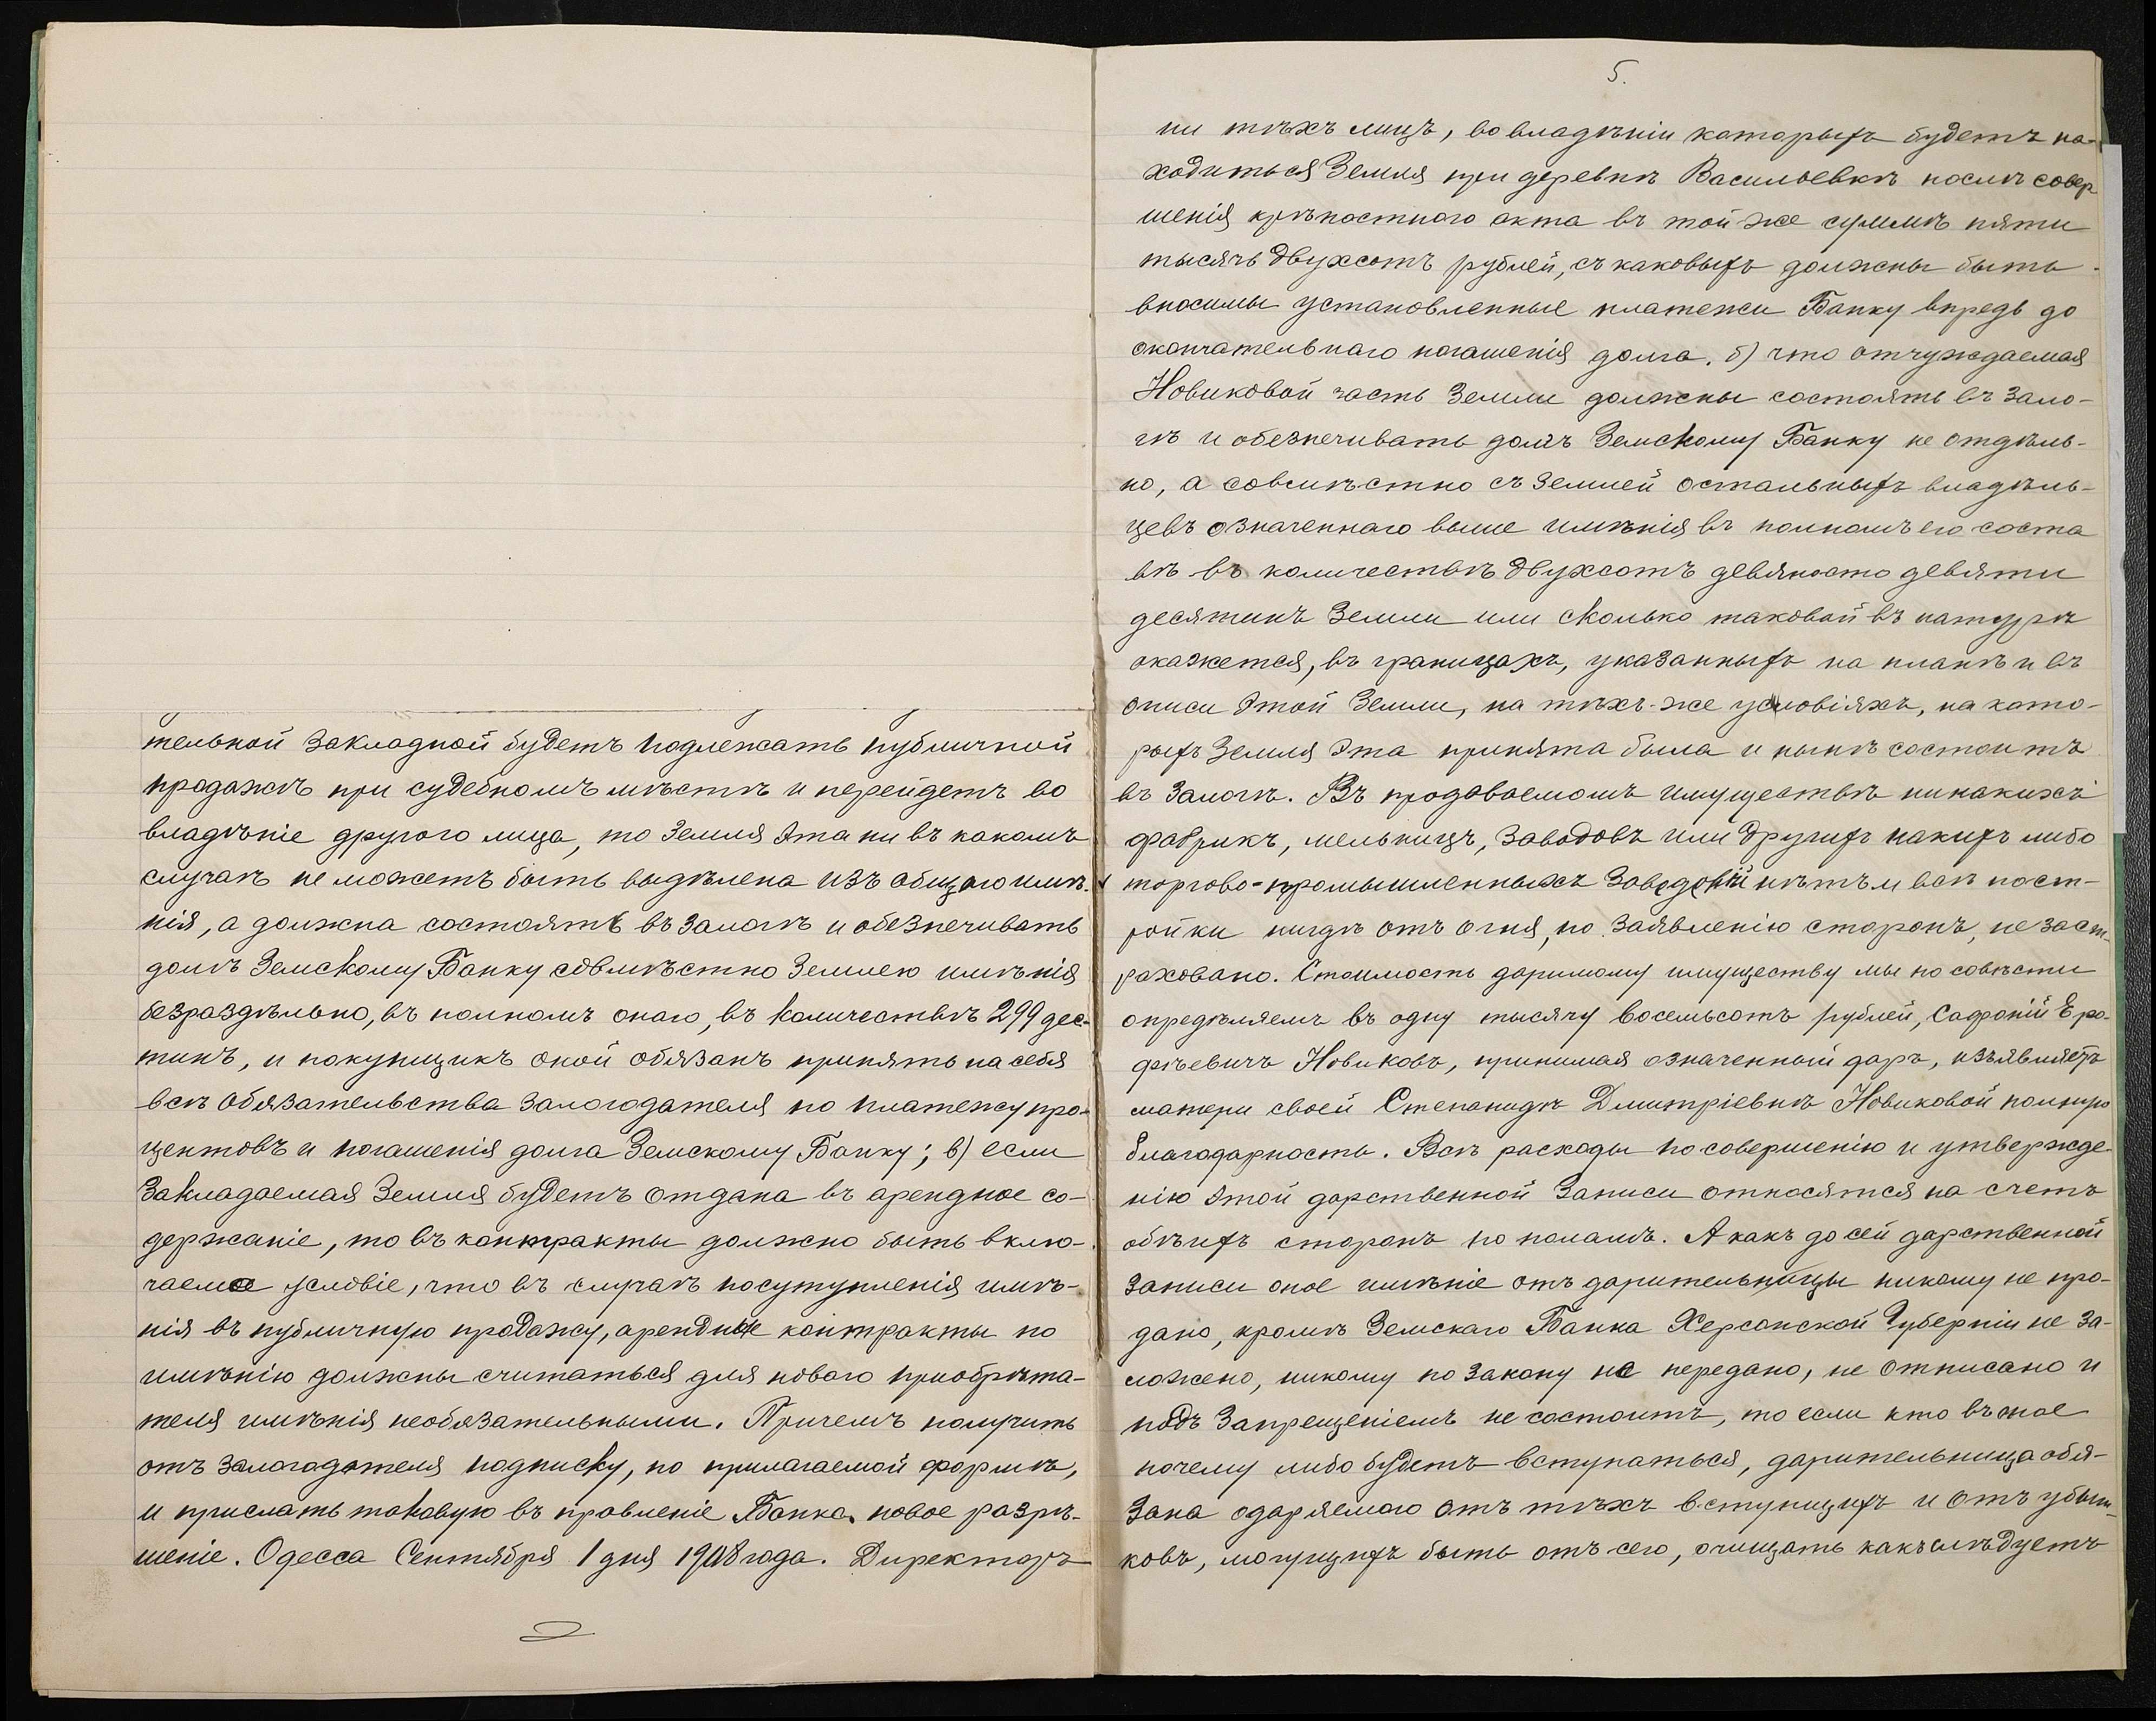 тельной закладной будетъ подлежать публичной
продажѣ при судебномъ мѣстѣ и перейдетъ во
владѣніе другого лица, то земля эта ни въ какомъ
случаѣ не можетъ быть выдѣлена изъ общаго имѣ-
нія, а должна состоять въ залогѣ и обезпечивать
долгъ Земскому Банку совмѣстно землею имѣнія
безраздѣльно, въ полномъ онаго, въ количествѣ 299 дес-
тинъ, и покупщикъ оной обязанъ принять на себя
всѣ обязательства залогодателя по платежу про-
центовъ и погашенія долга Земскому Банку; в) если
закладаемая земля будетъ отдана въ арендное со-
держаніе, то въ контракты должно быть вклю-
чаемое условіе, что въ случаѣ посутупленія имѣ-
нія въ публичную продажу, арендные контракты по
имѣнію должны считаться для новаго приобрѣта-
теля имѣнія необязательными. Причемъ получить
отъ залогодателя подписку, по прилагаемой формѣ,
и прислать таковую въ правленіе Банка. новое разрѣ-
шеніе. Одесса Сентября 1 дня 1908 года. Директоръ
5.
ни тѣхъ лицъ, во владѣніи которыхъ будетъ на-
ходиться земля при деревнѣ Васильевкѣ послѣ совер
шенія крѣпостного акта въ той же суммѣ пяти
тысячъ двухсотъ рублей, съ каковыхъ должны быть
вносимы установленные платежи Банку впредь до
окончательнаго погашенія долга, б) что отчуждаемая
Новиковой часть земли должны состоять въ зало-
гѣ и обезпечивать долгъ Земскому Банку не отдѣль-
но, а совмѣстно съ землей остальныхъ владѣль-
цевъ означеннаго выше имѣнія въ полномъ его соста
вѣ въ количествѣ двухсотъ девяносто девяти
десятинъ земли или сколько таковой въ натурѣ
окажется, въ границахъ, указанныхъ на планѣ и въ
описи этой земли, на тѣхъ-же условіяхъ, на кото-
рыхъ земля эта принята была и нынѣ состоитъ
въ залогѣ. Въ продаваемомъ имуществѣ никакихъ
фабрикъ, мельницъ, заводовъ или другихъ какихъ либо
торгово-промышленныхъ заведеній нѣтъ и всѣ пост-
ройки нигдѣ отъ огня, по заявленію сторонъ, не заст-
раховано. Стоимость даримому имуществу мы по совѣсти
опредѣляемъ въ одну тысячу восемьсотъ рублей, Сафроній Еро-
фѣевичъ Новиковъ, принимая означенный даръ, изъявляетъ
матери своей Степанидѣ Дмитріевнѣ Новиковой полную
благодарность. Всѣ расходы по совершенію и утвержде-
нію этой дарственной записи относятся на счетъ
обѣихъ сторонъ по поламъ. А какъ до сей дарственной
записи оное имѣніе отъ дарительницы никому не про-
дано, кромѣ Земскаго Банка Херсонской Губерніи не за-
ложено, никому по закону не передано, не отписано и
подъ запрещеніемъ не состоитъ, то если кто въ оное
почему либо будетъ вступаться, дарительница обя-
зана одаряемого отъ тѣхъ вступщихъ и отъ убыт-
ковъ, могущихъ быть отъ сего, очищать какъ слѣдуетъ